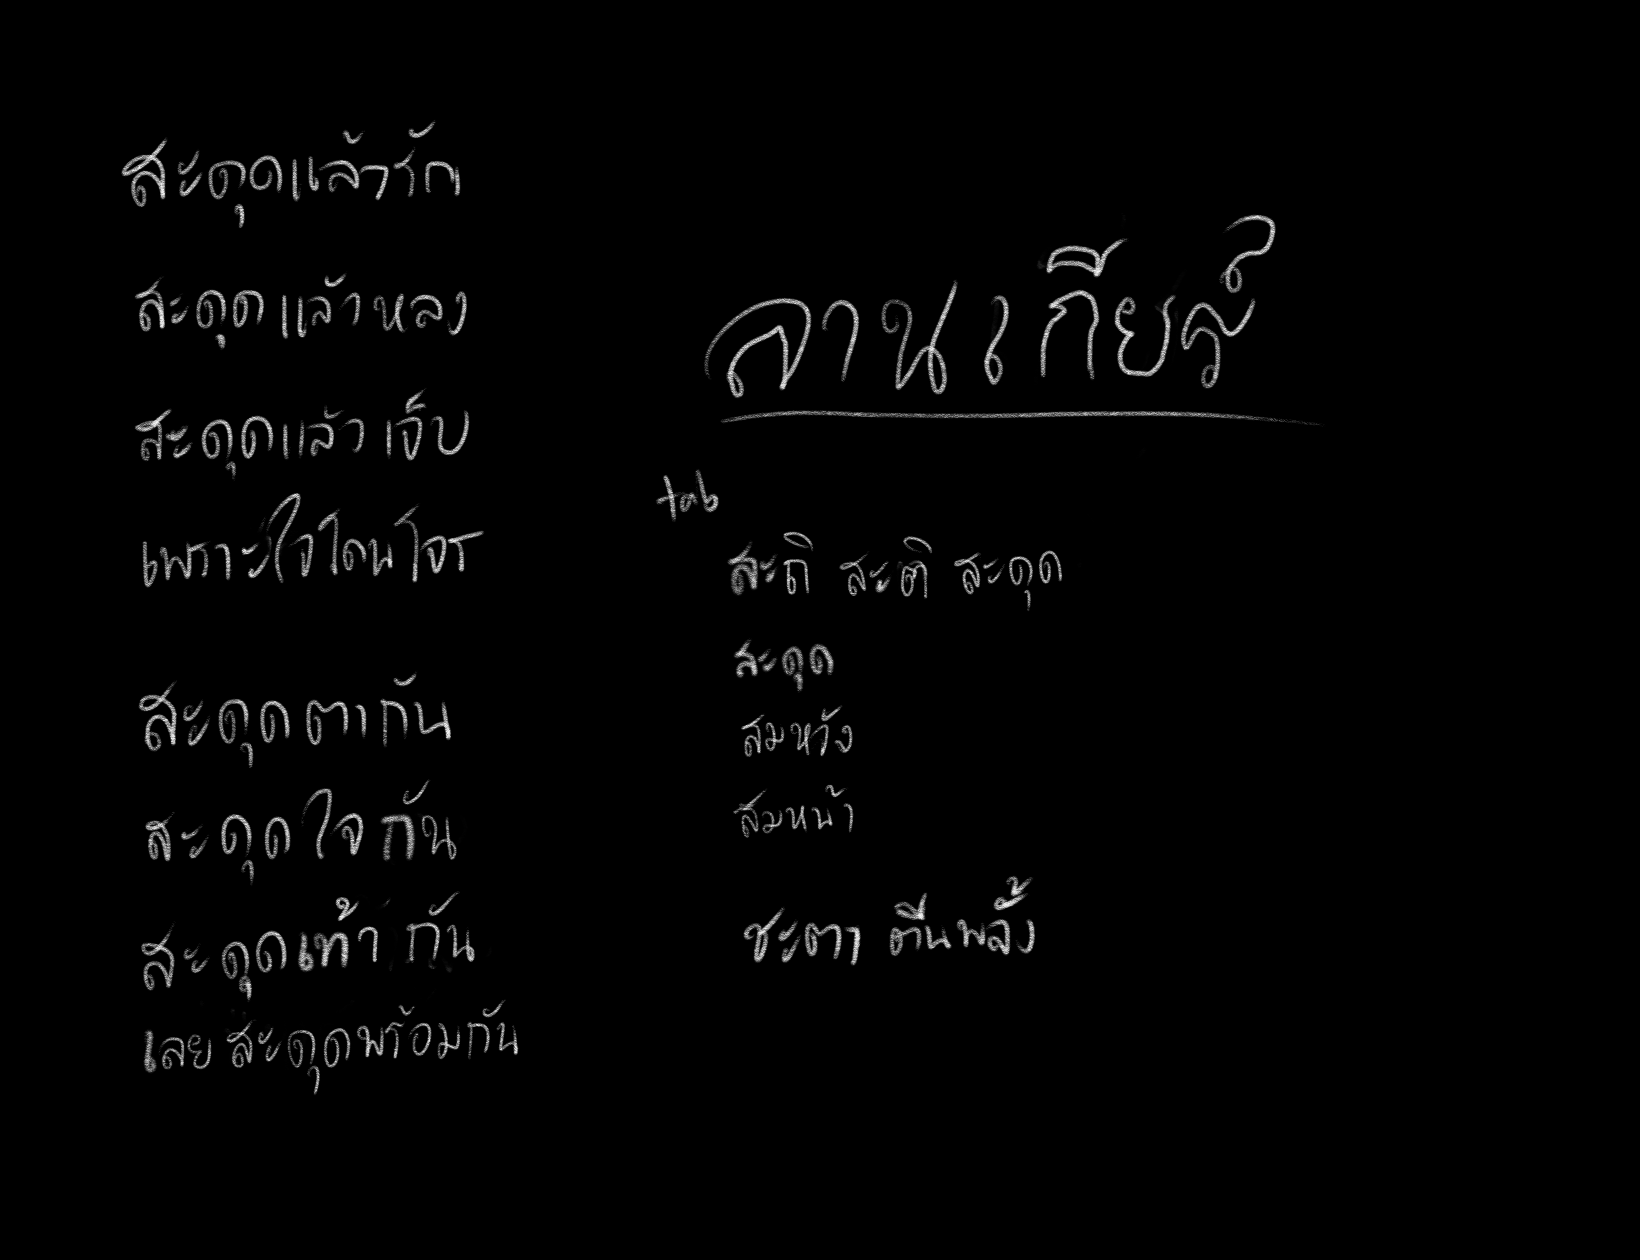 สะดุดแล้วรัก
สะดุดแล้วหลง
สะดุดแล้วเจ็บ
เพราะใจโดนโจร
สะดุดตากัน
สะดุดใจกัน
สะดุดเท้ากัน
เลยสะดุดพร้อมกัน
ลานเกียร์
tab
สะถิ สะติ สะดุด
สะดุด
สมหวัง
สมหน้า
ชะตา ตีนพลั้ง